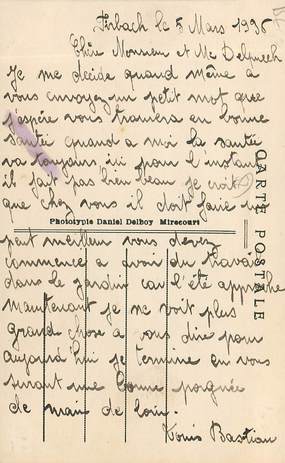 Firbach le 5 Mars 1936
Chère Monsieur et Me Delquech
Je me decide quand même a
vous envoyez un petit mot que
j'espère vous trouvera en bonne
santée quand a moi la santée
va toujours ici pour l'instant
il fait pas bien beau je croit
que chez vous il doit faire un
Phototypie Daniel Delboy Mirecourt
CARTE POSTALE
peut meilleur vous devez
commencé a avoir du travail
dans le jardin car l'été approche
maintenant je ne voit plus
grand chose a vous dire pour
aujourd hui je termine en vous
serrant une bonne poignée
de main de loin.
Louis Bastian